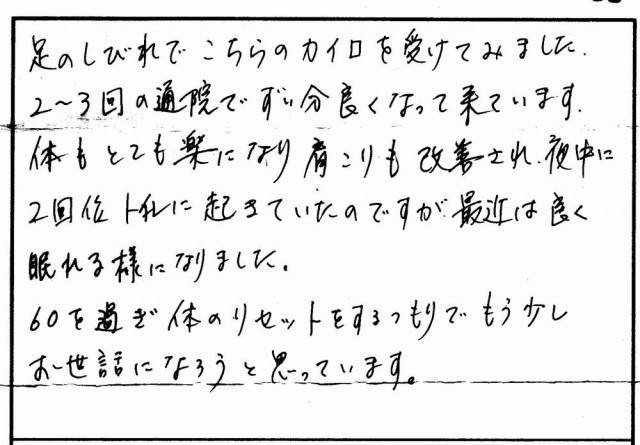 足のしびれでこちらのカイロを受けてみました.
2～3回の通院でずい分良くなって来ています.
体もとても楽になり肩こりも改善され.夜中に
2回位トイレに起きていたのですが最近は良く
眠れる様になりました。
60を過ぎ体のリセットをするつもりでもう少し
お世話になろうと思っています。